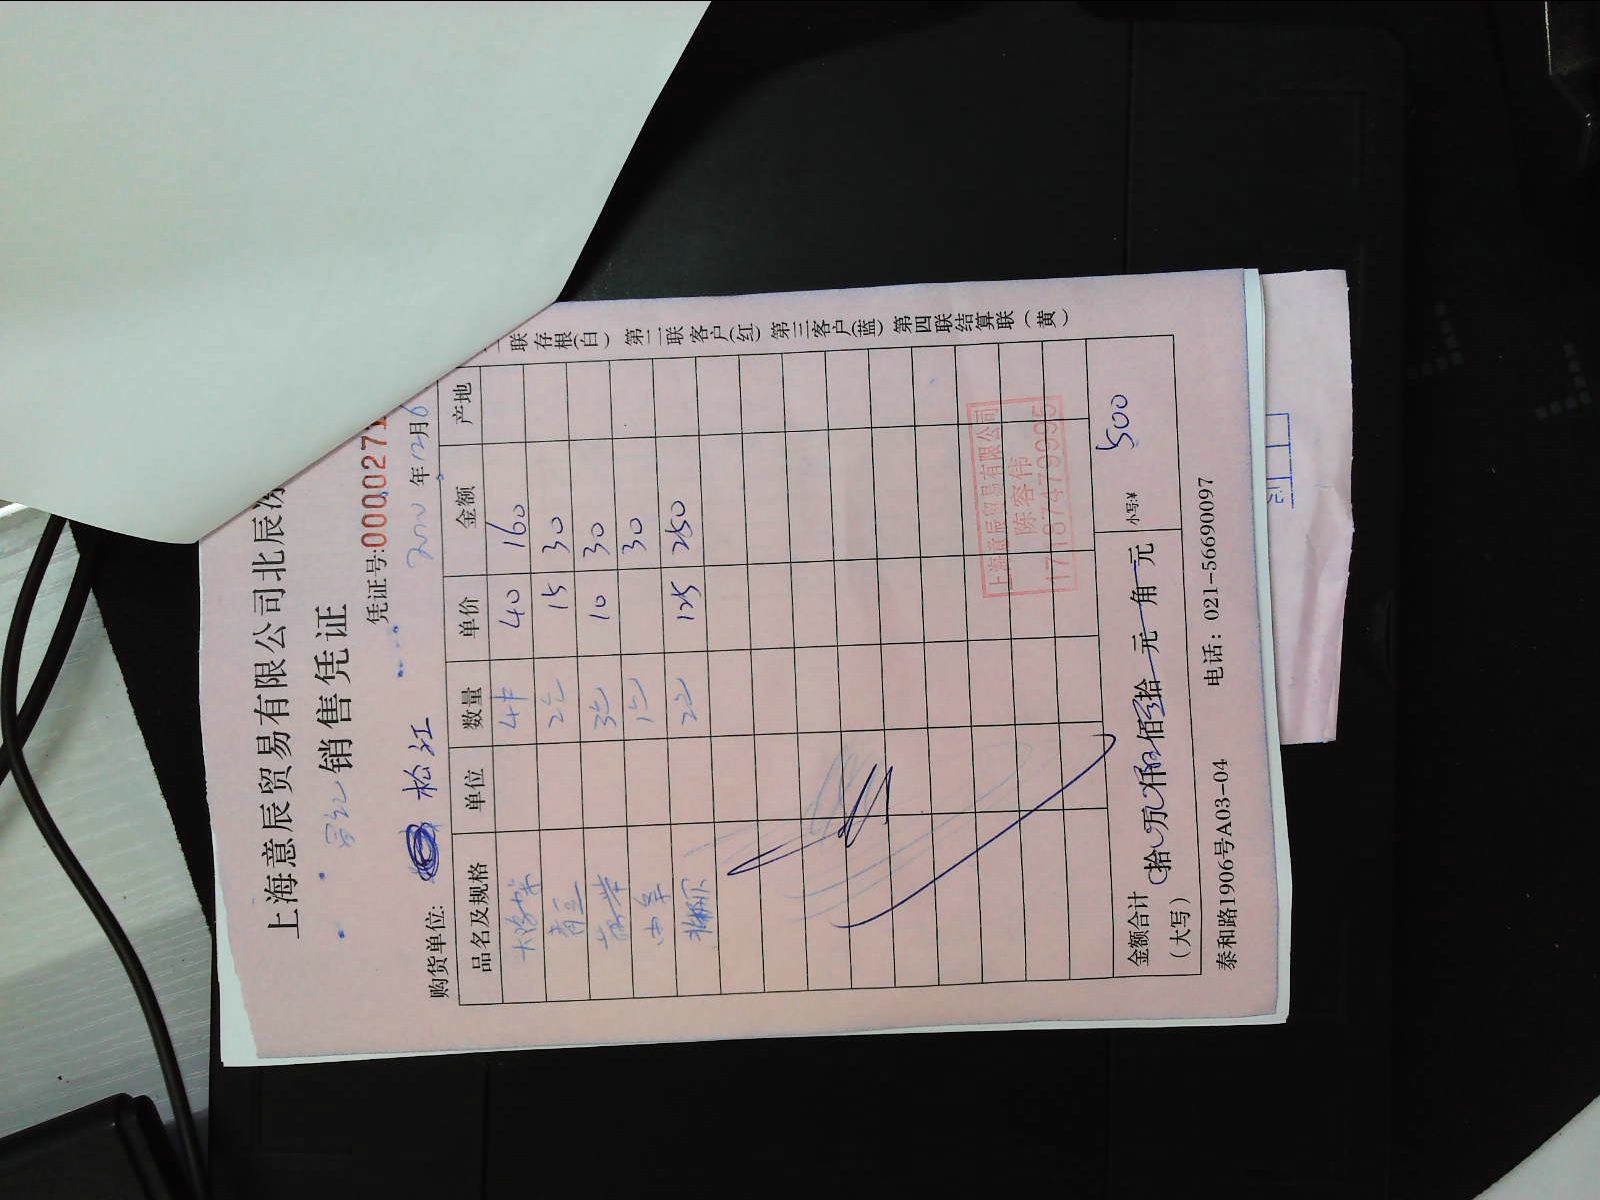 上海意辰贸易有限公司北辰冻
销售凭证
凭证号:0000271
购货单位: 松江 2020年12月6
品名及规格 单位 数量 单价 金额 产地
4件 40 160
青豆 2包 15 30
3包 10 30
1包 30
2包 125 250
上海意辰贸易有限公司
陈容伟
17187479995
金额合计
(大写)
拾 万 仟 佰 拾 元 角 元 小写:¥ 500
泰和路1906号A03-04 电话：021-56690097
联存根(白) 第二联客户(红) 第三客户(蓝) 第四联结算联(黄)